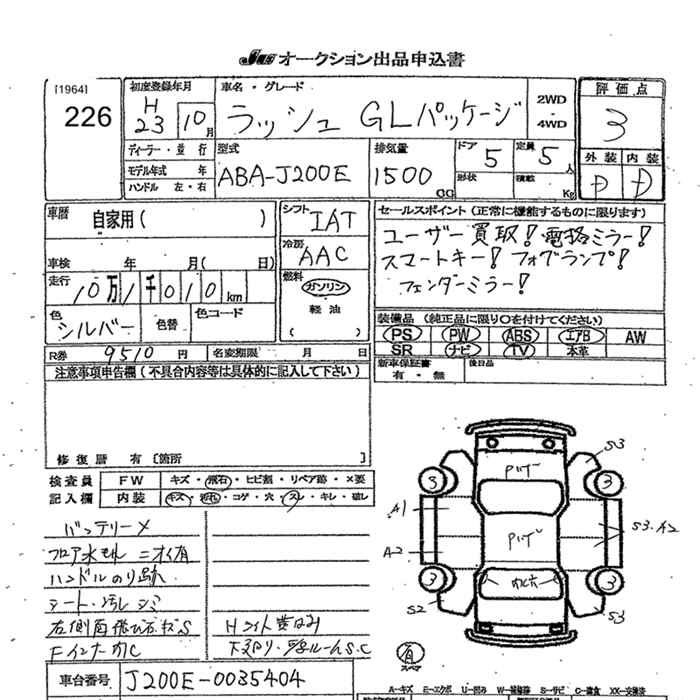 JAS オークション出品申込書
[1964]
226
初度登録年月
H
23 10月
車名・グレード
ラッシュ GLパッケージ
2WD
・
4WD
評価点
3
ディーラー・並行
モデル年式 年
ハンドル 左・右
型式
ABA-J200E
排気量
1500
CC
ドア
5
形状
定員
5人
積載
Kg
外装 内装
D D
車歴 自家用( )
シフト IAT
冷房 AAC
燃料
ガソリン
軽油
( )
車検 年 月( 日)
走行 10万1千010km
色 シルバー
色替
色コード
R券 9510円
名変期限 月 日
セールスポイント(正常に機能するものに限ります)
ユーザー買取! 電格ミラー!
スマートキー! フォグランプ!
フェンダーミラー!
装備品(純正品に限り○を付けてください)
PS PW ABS エアB AW
SR ナビ TV 本革
新車保証書
有・無
後日品
注意事項申告欄(不具合内容等は具体的に記入して下さい)
修復歴 有〔箇所 〕
検査員
記入欄
FW キズ・飛石・ヒビ割・リペア跡・×要
内装 キズ・汚れ・コゲ・穴・スレ・キレ・破レ
バッテリーメ
フロア水モレ ニオイ有
ハンドルのり跡
シート汚レシミ
左側面飛び石キズS
FインナーカC
Hライト黄ばみ
下廻り・Eルーム S.C
車台番号 J200E-0035404
S3
3
3
A1
A2
S3.A2
3
3
S2
S3
有
スペア
A-キズ E-エクボ U-凹み W-補修跡 S-サビ C-腐食 XX-交換済